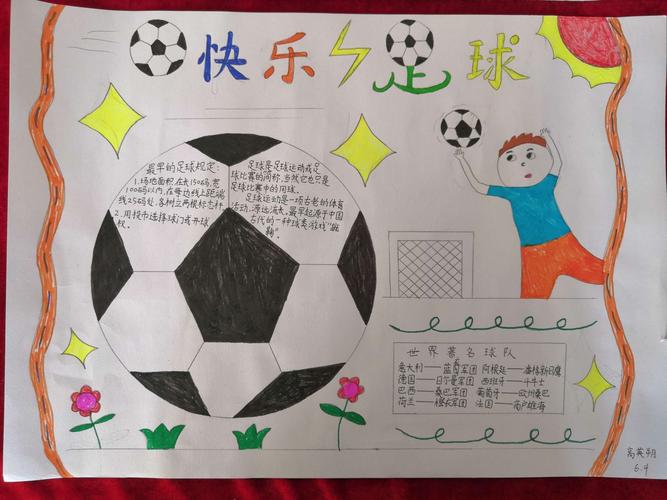 快乐足球
最早的足球规定：
1.场地面积,在长150码,宽
100码以内,在每边线上距端
线25码处,各树立两根标志杆
2.用投币选择球门或开球
权。
足球是足球运动或足
球比赛的简称,当然它也只是
足球比赛中的用球。
足球运动是一项古老的体育
活动,源远流长。最早起源于中国
古代的一种球类游戏"蹴
鞠"。
世界著名球队
意大利——蓝衣军团 阿根廷——潘帕斯雄鹰
德国——日尔曼军团 西班牙——斗牛士
巴西——桑巴军团 葡萄牙——欧洲桑巴
荷兰——橙衣军团 法国——高卢雄鸡
6.4